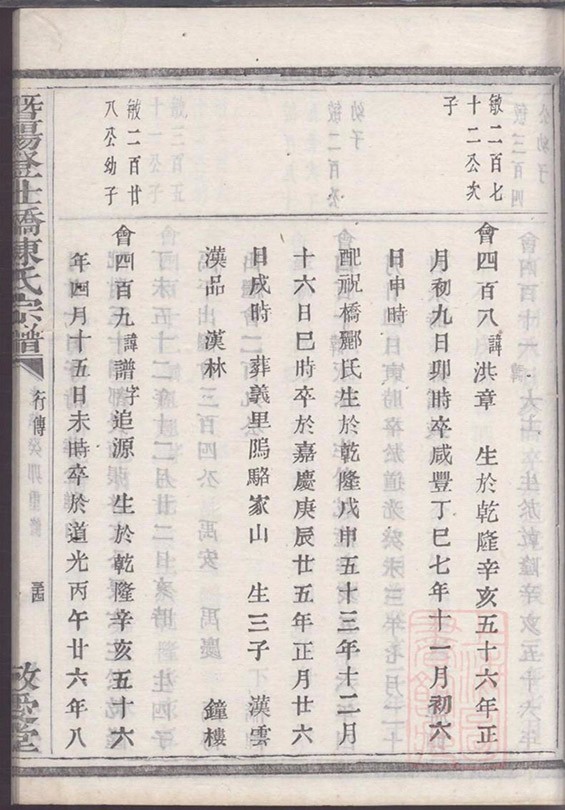 敏二百七
十二公次
子
會四百八諱洪章 生於乾隆辛亥五十六年正
月初九日卯時卒咸豐丁巳七年十一月初六
日申時
配祝橋酈氏生於乾隆戊申五十三年十二月
十六日巳時卒於嘉慶庚辰廿五年正月廿六
日戌時 葬義里隖駱家山 生三子 漢雲
漢品 漢林 鐘樓
敏二百廿
八公幼子
會四百九諱譜字追源 生於乾隆辛亥五十六
年四月十五日未時卒於道光丙午廿六年八
暨陽登仕橋陳氏宗譜
行傳
敬愛堂